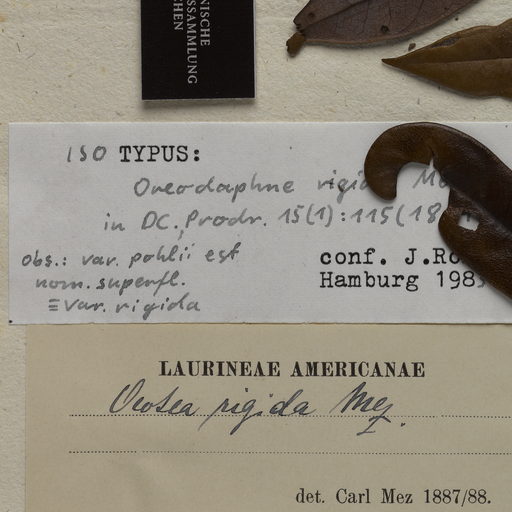 NISCHE
SSAMMLUNG
CHEN
ISO TYPUS:
Oreodaphne
in DC., Prodr. 15(1):115(18
obs.: var. pohlii est
nom. superfl.
≡ var. rigida
conf. J.Ro
Hamburg 198
LAURINEAE AMERICANAE
Ocotea rigida Mez.
det. Carl Mez 1887/88.